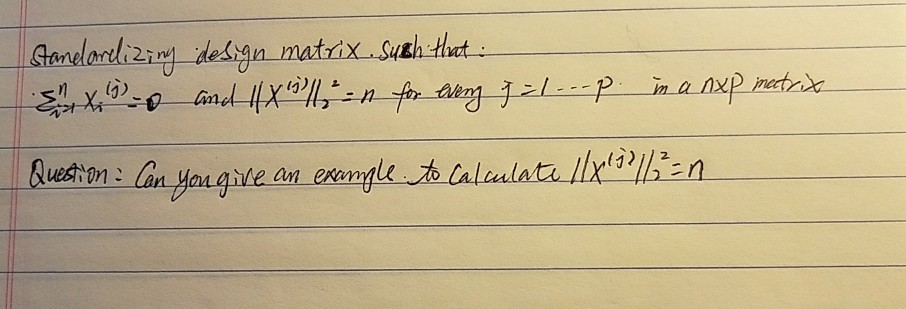 Standardizing design matrix. Such that:
∑ⁿᵢ₌₁ Xᵢ⁽ʲ⁾=0 and ||X⁽ʲ⁾||₂²=n for every j=1---p. in a nxp matrix
Question: Can you give an example to Calculate ||X⁽ʲ⁾||₂²=n